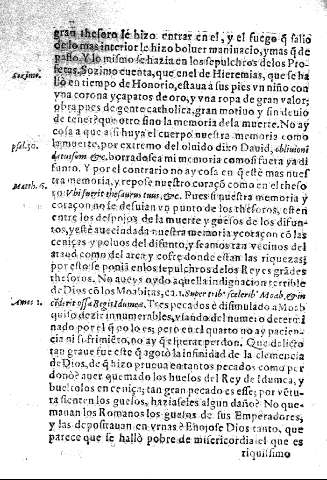 gran thesoro le hizo entrar en el, y el fuego q̃ salio
de lo mas interior le hizo boluer maninacio, y mas q̃ de
passo. Y lo mismo se hazia en los sepulchros de los Pro-
Sozimo.
fetas. Sozimo cuenta, que en el de Hieremias, que se ha
llò en tiempo de Honorio, estaua à sus pies vn niño con
vna corona y çapatos de oro, y vna ropa de gran valor;
obra pues de gente catholica, gran motiuo y sin deuio
de tener? que otro sino la memoria de la muerte. No ay
cosa a que assi huya el cuerpo nuestra memoria como
psal. 30.
la muerte, por extremo del oluido dixo Dauid, obliuioni
datus sum &c. borradose a mi memoria como si fueta ya di
funto. Y por el contrario no ay cosa en q̃ estè mas nues
tra memoria, y repose nuestro coraçõ como en el theso
Matth. 6.
ro: Vbi fuerit thesaurus tuus, &c. Pues si nuestra memoria y
coraçon no se desuian vn punto de los thesoros, esten
entre los despojos de la muerte y guesos de los difun-
tos, y estè auecindada nuestra memoria y coraçon cõ las
ceniças y poluos del difunto, y seamos tan vecinos del
ataud como del arca y cofre donde estan las riquezas;
por esto se ponia en los sepulchros de los Reyes grãdes
thesoros. No aueys oydo aquella indignacion terrible
de Dios cõ los Moabitas, ca. 1. Super trib' sceleribꝰ Moab, &c. in
Amos 2.
cẽderit ossa Regis Idumeæ. Tres pecados è disimulado a Moab
quito dezir innumerables, vsando del numero determi
nado por el q̃ no lo es; pero en el quarto no ay pacien-
cia ni sufrimiẽto, no ay que esperar perdon. Que delicto
tan graue fue este q̃ agotò la infinidad de la clemencia
de Dios, de q̃ hizo prueua en tantos pecados como per
donò? auer quemado los huelos del Rey de Idumea, y
bueltolos en ceniça; tan gran pecado es esse; por vẽtu-
ra sienten los guesos, haziaseles algun daño? No que-
mauan los Romanos los guesos de sus Emperadores,
y las depositauan en vrnas? Enojose Dios tanto, que
parece que se hallò pobre de misericordia el que es
riquissimo